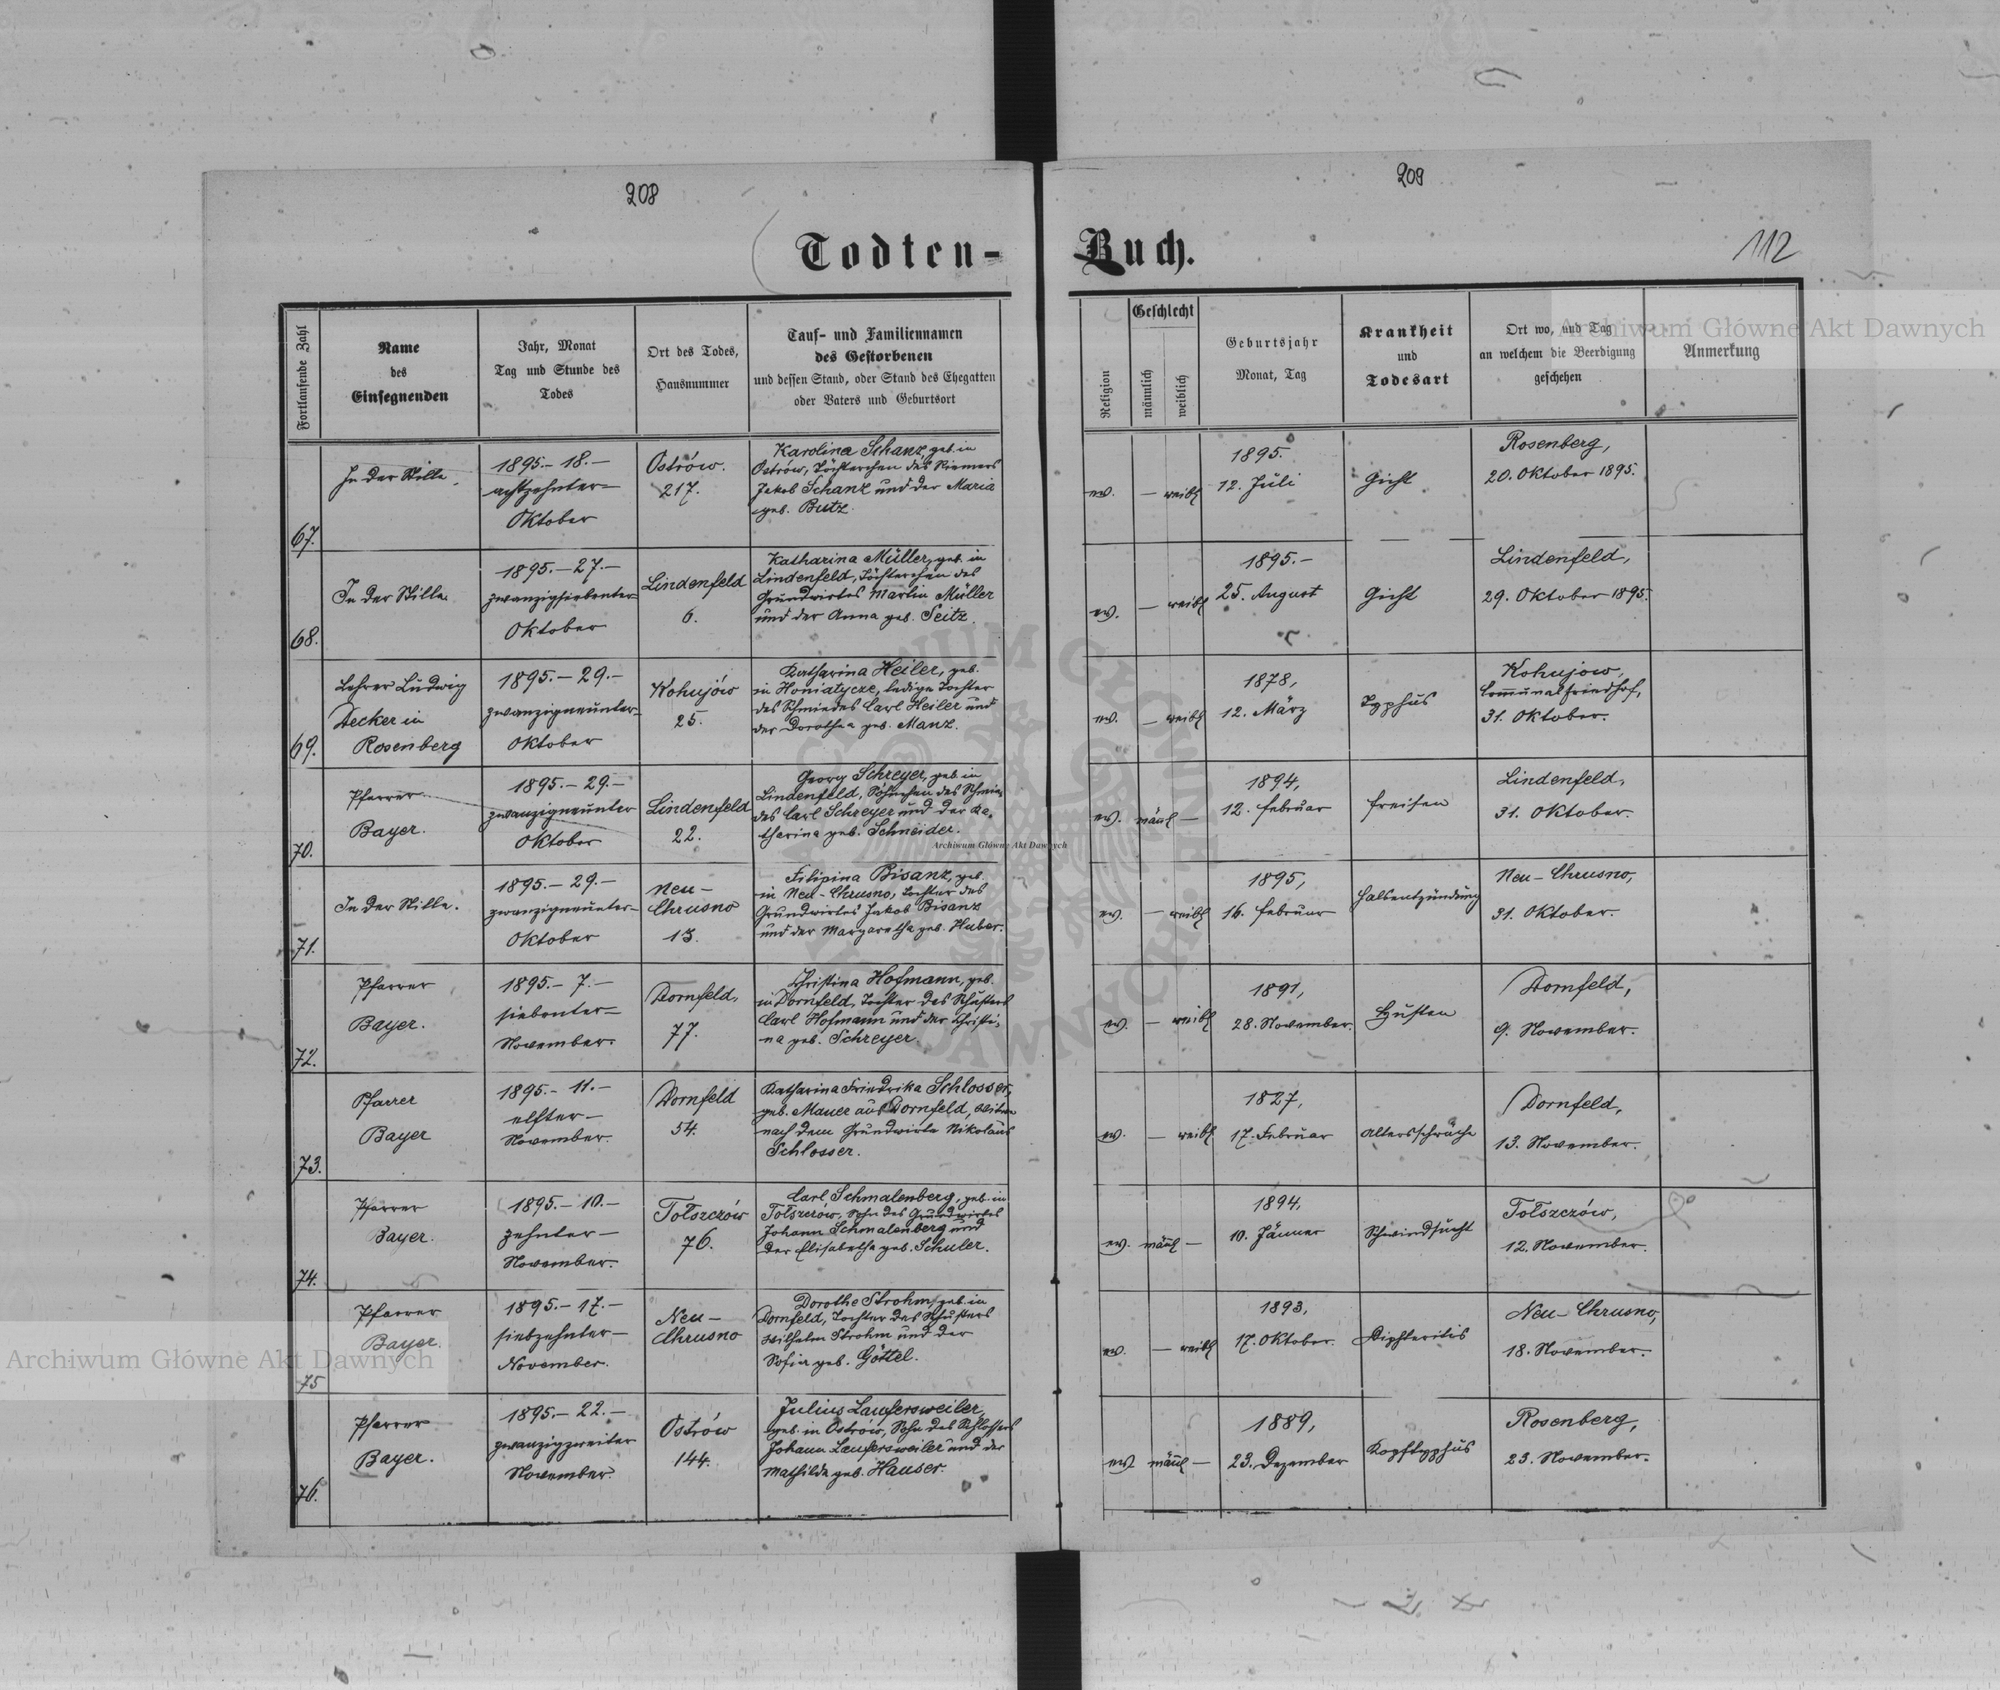 208
209
112
Todten-
Buch.
Fortlaufende Zahl
Name
des
Einsegnenden
Jahr, Monat
Tag und Stunde des
Todes
Ort des Todes,
Hausnummer
Tauf- und Familiennamen
des Gestorbenen
und dessen Stand, oder Stand des Ehegatten
oder Vaters und Geburtsort
Religion
Geschlecht
männlich
weiblich
Geburtsjahr
Monat, Tag
Krankheit
und
Todesart
Ort wo, und Tag
an welchem die Beerdigung
geschehen
Anmerkung
67.
In der Stille.
1895.- 18.-
achtzehnter-
Oktober
Ostrów.
217.
Karolina Schanz, geb. in
Ostrów, Töchterchen des Riemers
Jakob Schanz und der Maria
geb. Butz.
ev.
—
weibl
1895.
12. Juli
Gicht
Rosenberg,
20. Oktober 1895.
68.
In der Stille
1895.- 27.-
zwanzigsiebenter-
Oktober
Lindenfeld
6.
Katharina Müller, geb. in
Lindenfeld, Töchterchen des
Grundwirtes Martin Müller
und der Anna geb. Seitz.
ev.
—
weibl
1895.-
25. August
Gicht
Lindenfeld,
29. Oktober 1895.
69.
Lehrer Ludwig
Decker in
Rosenberg
1895.- 29.-
zwanzigneunter-
Oktober
Kohujów
25.
Katharina Heiler, geb.
in Honiatycze, ledige Tochter
des Schmiedes Carl Heiler und
der Dorothea geb. Manz.
ev.
—
weibl
1878,
12. März
Typhus
Kohujow,
Communalfriedhof,
31. Oktober.
70.
Pfarrer
Bayer.
1895.- 29.-
zwanzigneunter
Oktober
Lindenfeld
22.
Georg Schreyer, geb. in
Lindenfeld, Söhnchen des Schmie-
des Carl Schreyer und der Ka-
tharina geb. Schneider.
ev.
männl —
1894,
12. Februar
Freisen
Lindenfeld,
31. Oktober.
71.
In der Stille.
1895.- 29.-
zwanzigneunter-
Oktober
Neu-
Chrusno
13.
Filipina Bisanz, geb.
in Neu-Chrusno, Tochter des
Grundwirtes Jakob Bisanz
und der Margaretha geb. Huber.
ev.
—
weibl
1895,
16. Februar
Halsentzündung
Neu-Chrusno,
31. Oktober.
72.
Pfarrer
Bayer.
1895.- 7.-
siebenter-
November.
Dornfeld,
77.
Christina Hofmann, geb.
in Dornfeld, Tochter des Schusters
Carl Hofmann und der Christi-
na geb. Schreyer.
ev.
—
weibl
1891,
28. November.
Husten
Dornfeld,
9. November.
73.
Pfarrer
Bayer
1895.- 11.-
elfter-
November.
Dornfeld
54.
Katharina Friedrika Schlosser,
geb. Mauer aus Dornfeld, Witwe
nach dem Grundwirte Nikolaus
Schlosser.
ev.
—
weibl
1827,
17. Februar
Altersschwäche
Dornfeld,
13. November.
74.
Pfarrer
Bayer.
1895.- 10.-
zehnter-
November.
Tołszczów
76.
Carl Schmalenberg, geb. in
Tołszczów, Sohn des Grundwirtes
Johann Schmalenberg und
der Elisabetha geb. Schuler.
ev.
männl —
1894,
10. Jänner
Schwindsucht
Tołszczów,
12. November.
75
Pfarrer
Bayer.
1895.- 17.-
siebzehnter-
November.
Neu-
Chrusno
Dorothe Strohm, geb. in
Dornfeld, Tochter des Schusters
Wilhelm Strohm und der
Sofia geb. Göttel.
ev.
—
weibl
1893,
17. Oktober.
Diphteritis
Neu-Chrusno,
18. November.
76.
Pfarrer
Bayer.
1895.- 22.-
zwanzigzweiter
November.
Ostrów
144.
Julius Laufersweiler,
geb. in Ostrów, Sohn des Schlossers
Johann Laufersweiler und der
Mathilde geb. Hauser.
ev.
männl —
1889,
23. Dezember
Kopftyphus
Rosenberg,
23. November.
Archiwum Główne Akt Dawnych
Archiwum Główne Akt Dawnych
Archiwum Główne Akt Dawnych